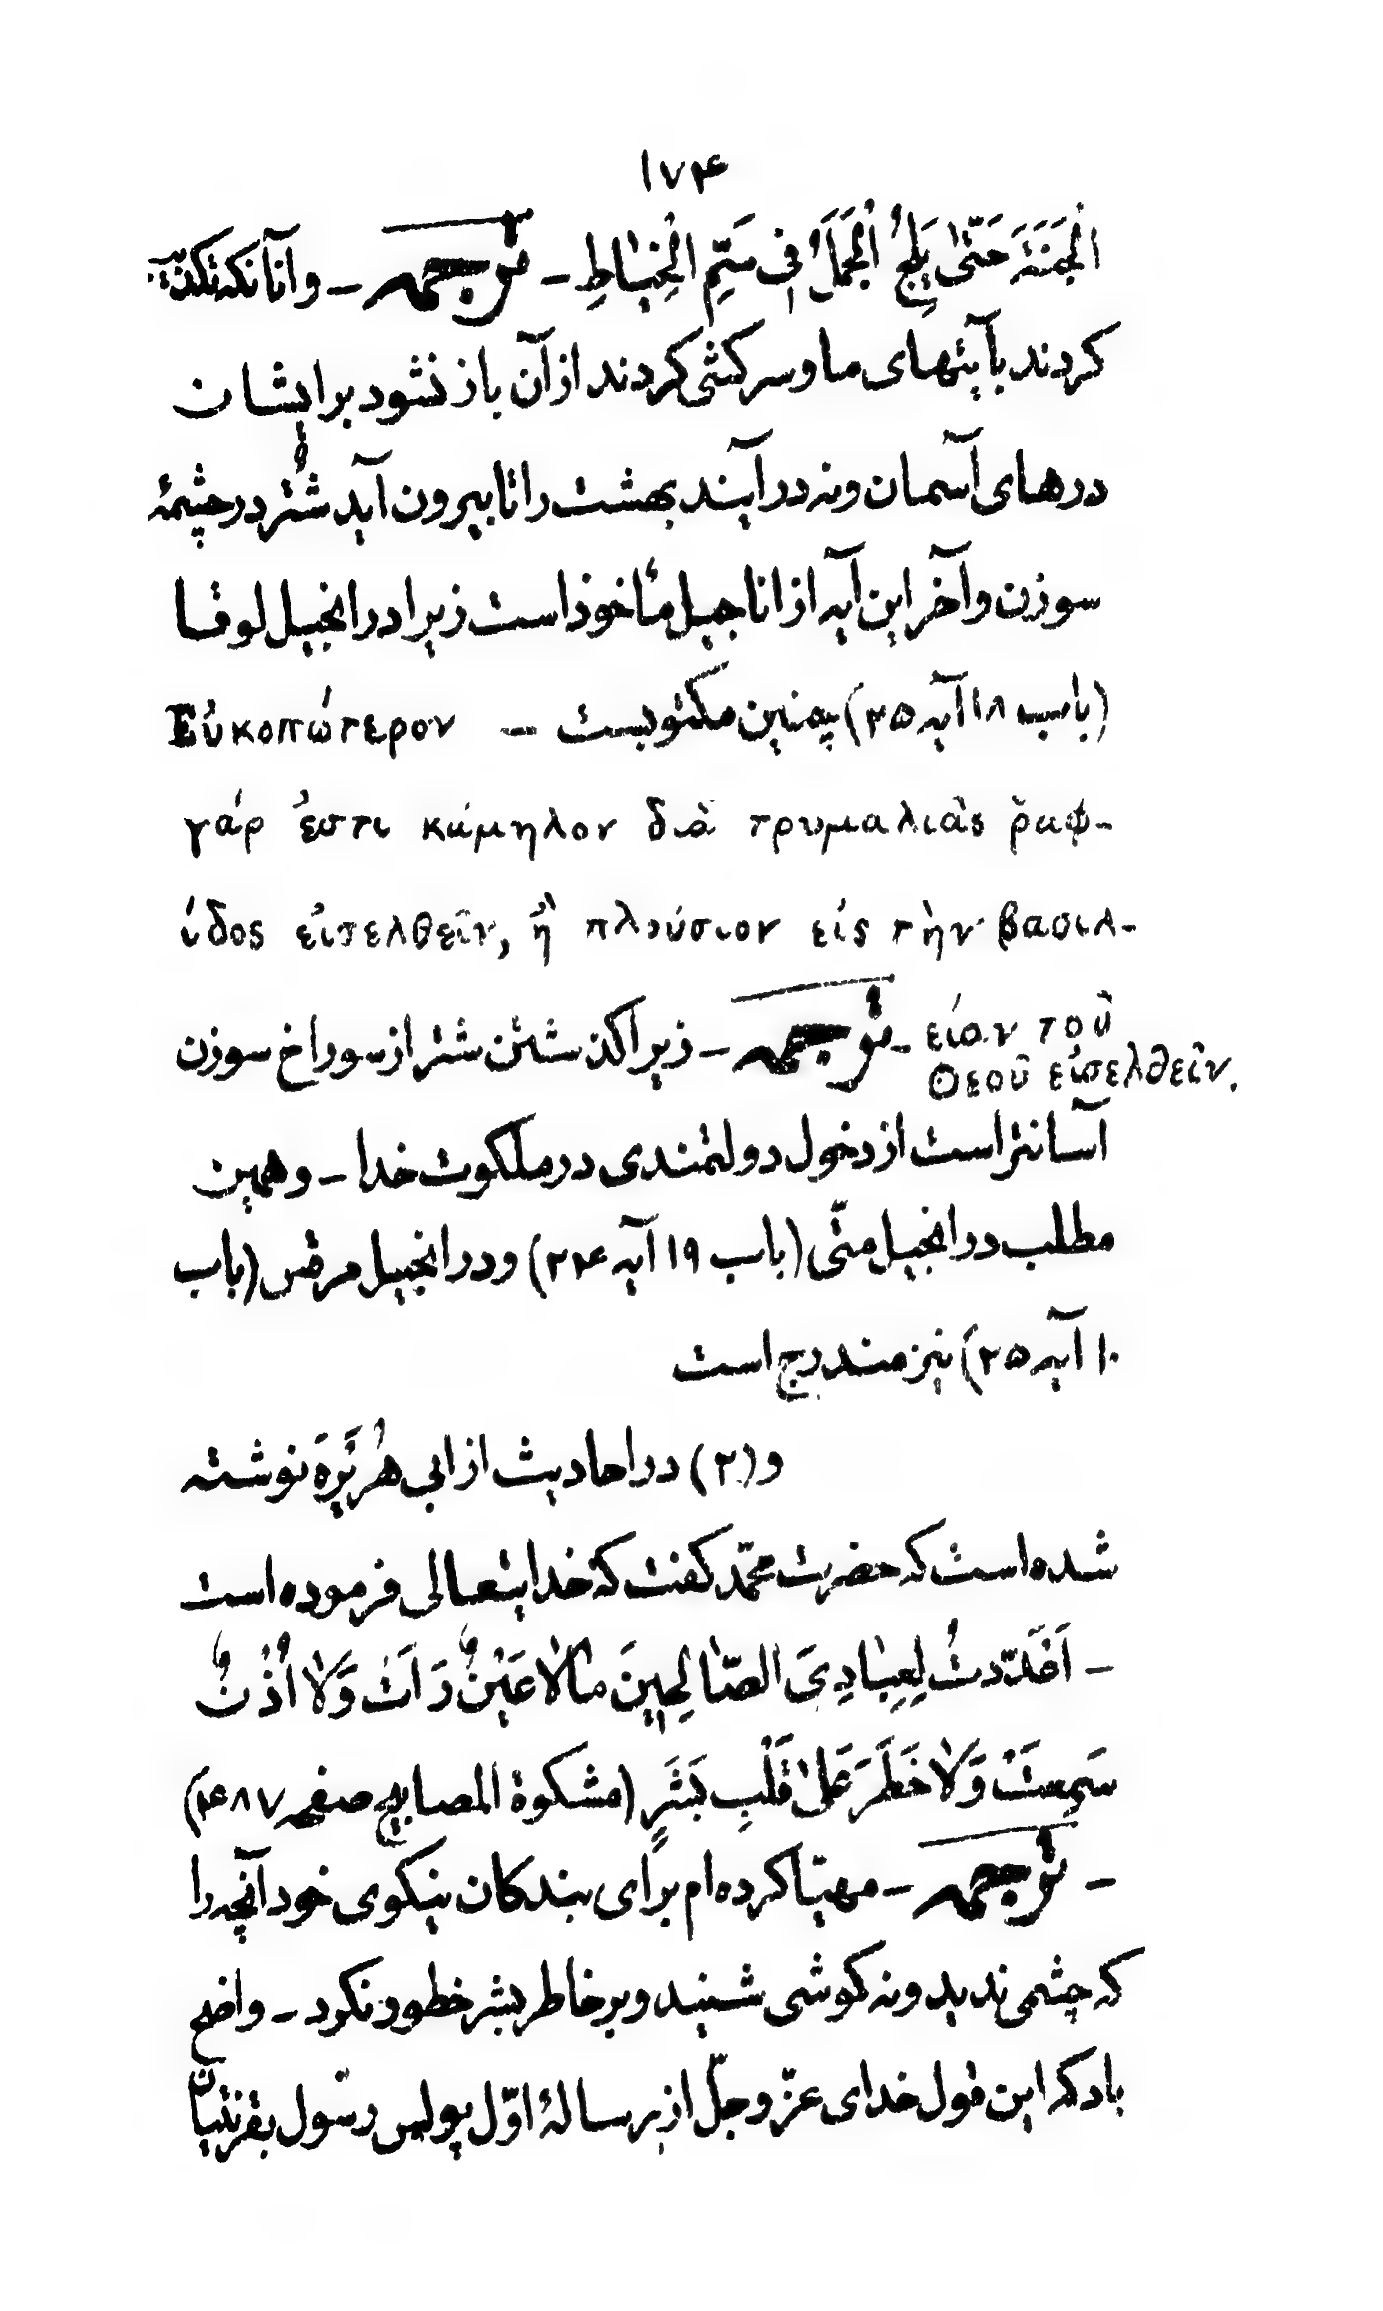 ۱۷۴
الْجَنَّةَ حَتّىٰ يَلِجُ الْجَمَلُ فِى سَمِّ الْخِيٰاطِ - ترجمه - و آنانكه تكذيب
كردند بآيتهاى ما و سركشى كردند از آن باز نشود برايشان
درهاى آسمان و نه در آيند بهشت را تا بيرون آيد شتر در چشمهٔ
سوزن و آخر اين آيه از اناجيل مأخوذ است زيرا در انجيل لوقا
(باب ۱۸ آيه ۲۵) چنين مكتوبست – Εὐκοπώτερον
γάρ ἐστι κάμηλον διὰ τρυμαλιᾶς ῥαφ-
ίδος εἰσελθεῖν, ἢ πλούσιον εἰς τὴν βασιλ-
είαν τοῦ Θεοῦ εἰσελθεῖν. - ترجمه - زيرا گذشتن شتر از سوراخ سوزن
آسانتر است از دخول دولتمندى در ملكوت خدا - و همين
مطلب در انجيل متّى (باب ۱۹ آيه ۲۴) و در انجيل مرقس (باب
۱۰ آيه ۲۵) نيز مندرج است
و (۲) در احاديث از ابى هُرَيْرَةَ نوشته
شده است كه حضرت محمّد گفت كه خدايتعالى فرموده است
- اَعْدَدْتُ لِعِبٰادِىَ الصّٰالِحِينَ مٰا لاٰ عَيْنٌ رَاَتْ وَلاٰ اُذُنٌ
سَمِعَتْ وَلاٰ خَطَرَ عَلىٰ قَلْبِ بَشَرٍ (مشكوة المصابيح صفحه ۴۸۷)
- ترجمه - مهيّا كرده ام براى بندگان نيكوى خود آنچه را
كه چشمى نديد و نه گوشى شنيد و بر خاطر بشر خطور نكرد - واضح
باد كه اين قول خداى عزّ و جلّ از رسالهٔ اوّل پولس رسول بقرنتيان